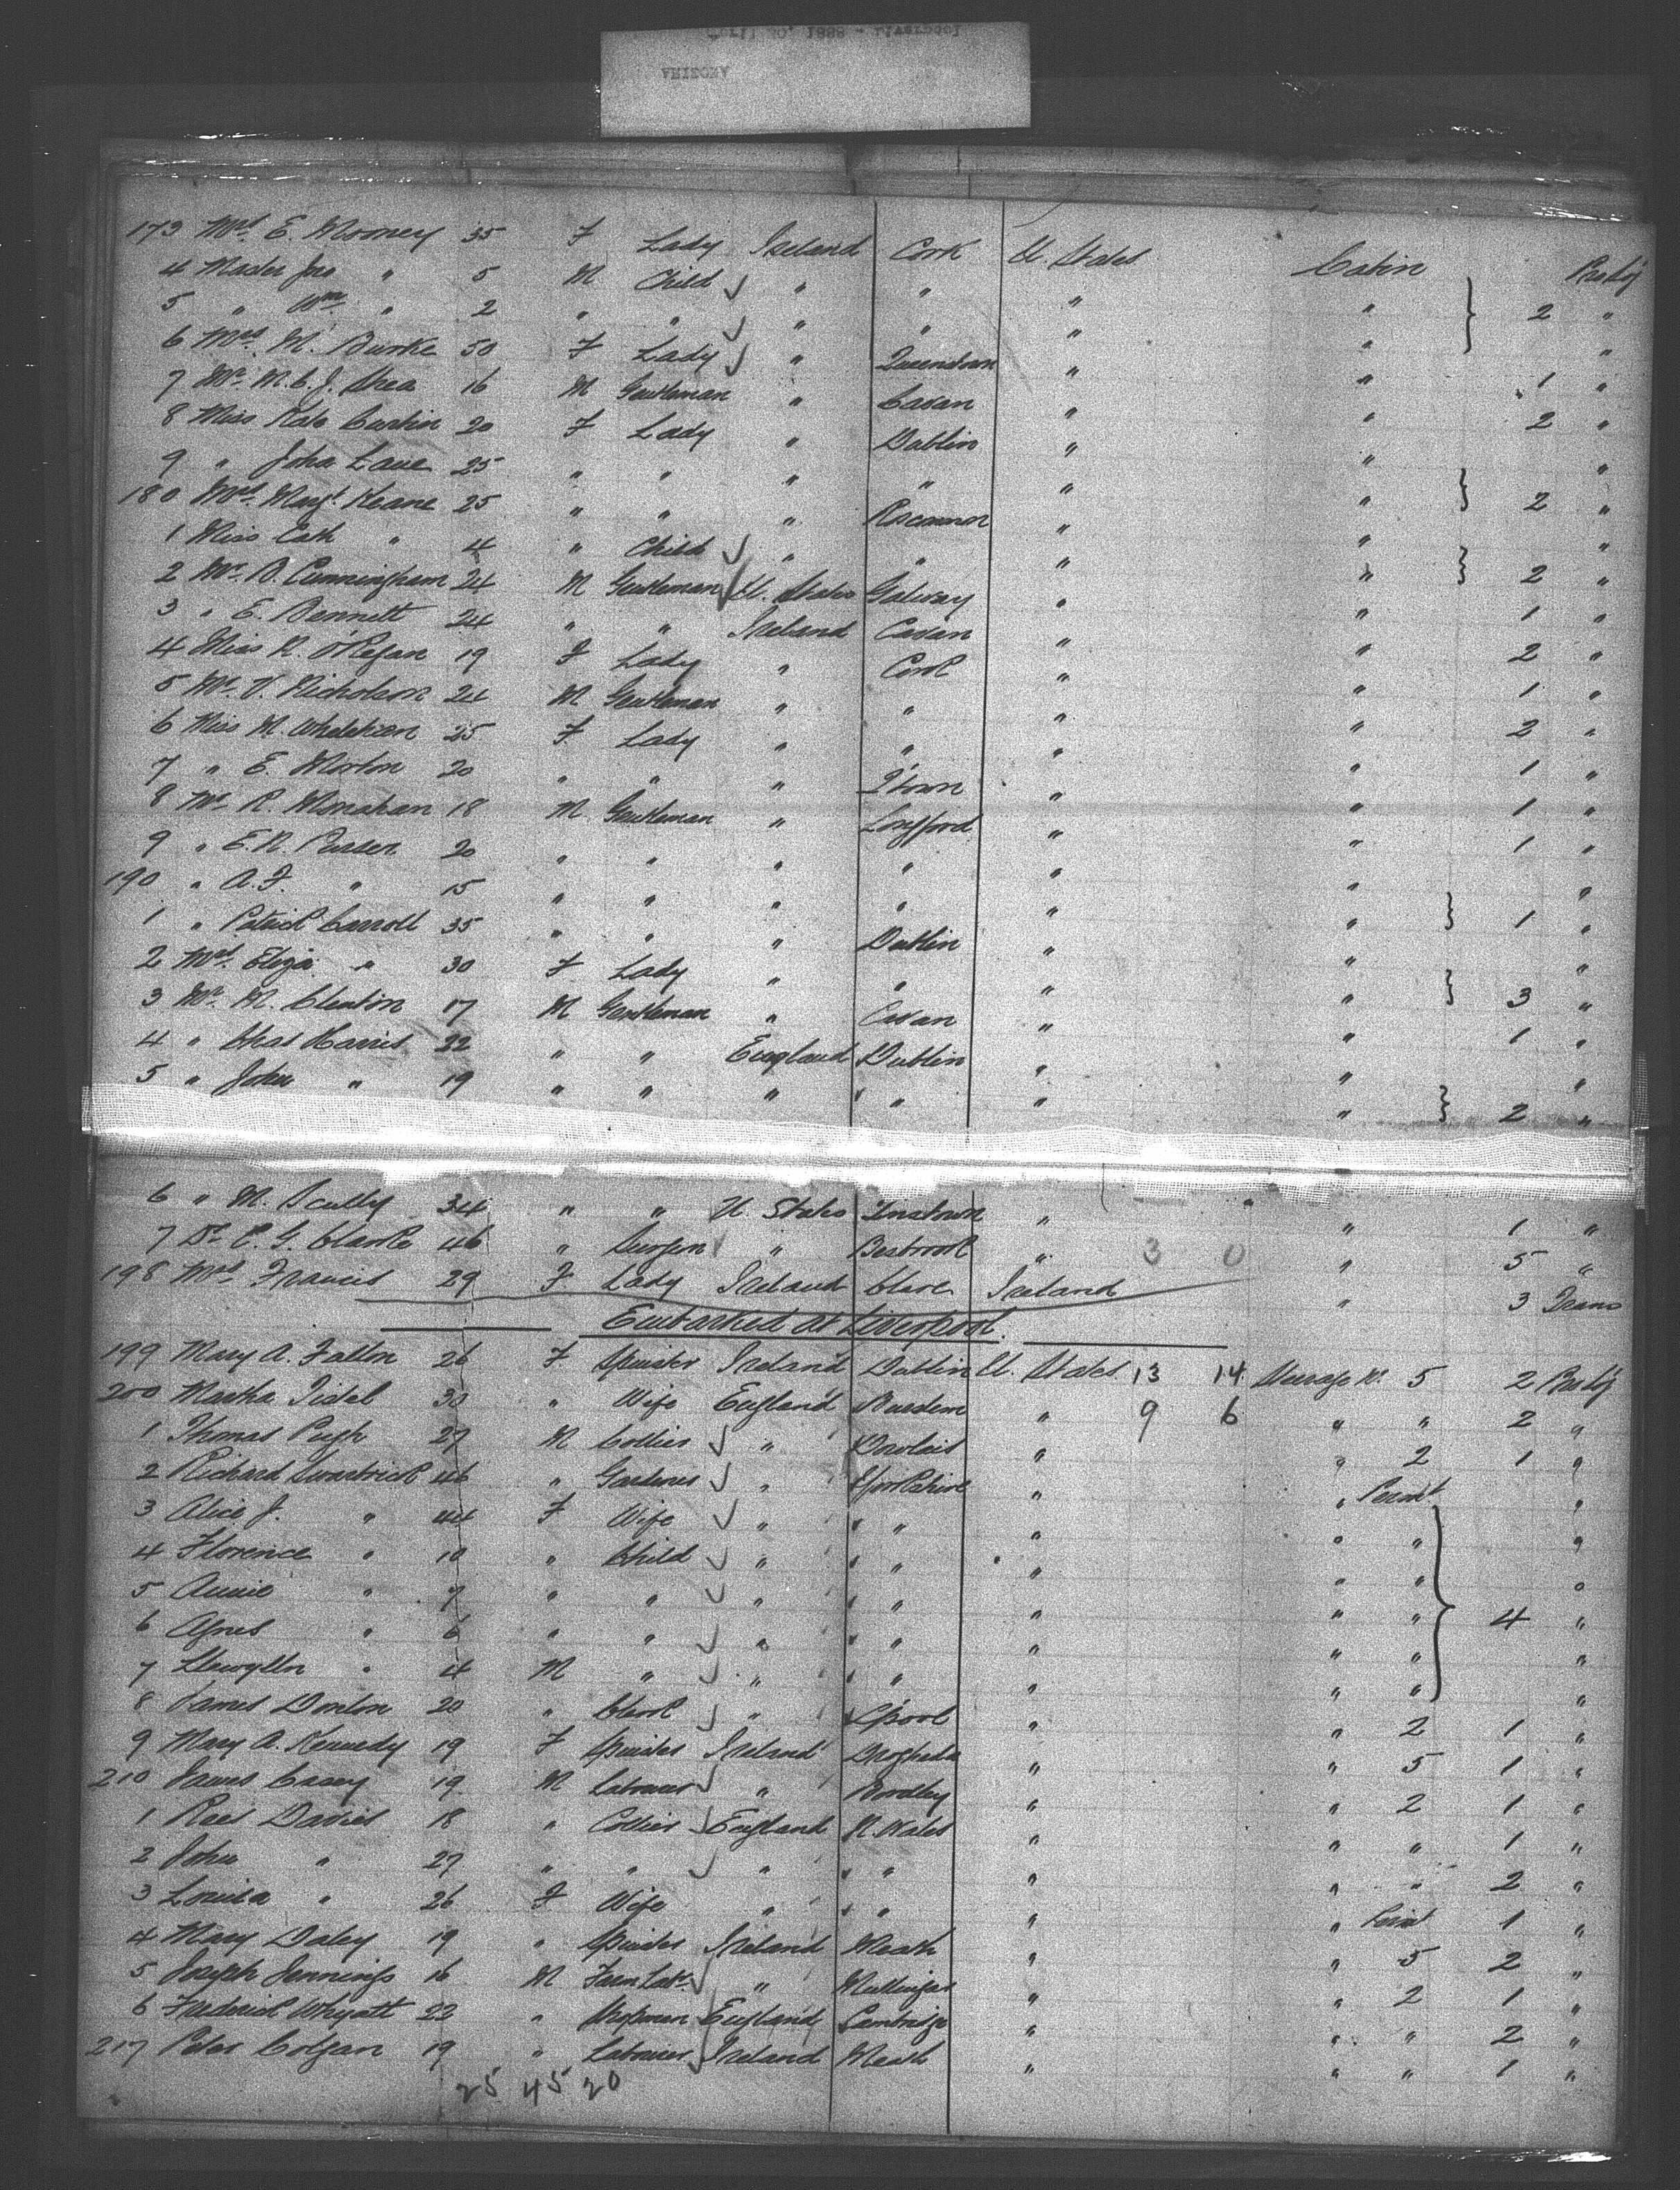 April 30, 1888 - Liverpool
ARIZONA
173 Mrs. E. Mooney 35 F Lady Ireland Cork U. States Cabin Prot'g
4 Master Jno " 5 M Child " " " " 2 "
5 " Wm. " 2 " " " " " " "
6 Mrs. M. Burke 50 F Lady " Queenstown " " 1 "
7 Mr. M. C. J. Shea 16 M Gentleman " Cavan " " 2 "
8 Miss Kate 20 F Lady " Dublin " " "
9 " Lane 25 " " " " " " 2 "
180 Mrs. Margt. Keane 25 " " " " " "
1 Miss Cath " 4 " Child " " " " 2 "
2 Mr. B. Cunningham 24 M Gentleman U. States Galway " " 1 "
3 " E. Bennett 24 " " Ireland Cavan " " 2 "
4 Miss N. O'Regan 19 F Lady " Cork " " 1 "
5 Mr. V. Nicholson 24 M Gentleman " " " " 2 "
6 Miss M. 25 F Lady " " " " 1 "
7 " E. Morton 20 " " " Q'town " " 1 "
8 Mr. R. Monahan 18 M Gentleman " Longford " " 1 "
9 " E. R. 20 " " " " " " "
190 " A. F. " 15 " " " " " " 1 "
1 " Patrick Carroll 35 " " " Dublin " " "
2 Mrs. Eliza " 30 F Lady " " " " 3 "
3 Mr. M. 17 M Gentleman " Cavan " " 1 "
4 " Chas Harris 22 " " England Dublin " " "
5 " John " 19 " " " " " " 2 "
6 " M. Scully 34 " " U. States " " 1 "
7 Dr. C. G. Clarke 46 " Surgeon " Besbrook " 3 0 " 5 "
198 Mrs. Francis 29 F Lady Ireland Clare Ireland " 3 Trans
Embarked at Liverpool.
199 Mary A. Fallon 26 F Spinster Ireland Dublin U. States 13 14 Steerage No. 5 2 Prot'g
200 Martha 30 " Wife England " 9 6 " " 2 "
1 Thomas Pugh 27 M Collier " Dowlais " " 2 1 "
2 Richard Swarbrick 46 " Gardener " " " "
3 Alice J. " 44 F Wife " " " " " "
4 Florence " 10 " Child " " " " " "
5 Annie " 7 " " " " " " " 4 "
6 Agnes " 6 " " " " " " " "
7 Llewylln " 4 M " " " " " " "
8 James Donlon 20 " Clerk " L'pool " " 2 1 "
9 Mary A. Kennedy 19 F Spinster Ireland Drogheda " " 5 1 "
210 James Casey 19 M Labourer " " " 2 1 "
1 Rees Davies 18 " Collier England N. Wales " " " 1 "
2 John " 27 " " " " " " " 2 "
3 Louisa " 26 F Wife " " " " 1 "
4 Mary Daley 19 " Spinster Ireland Meath " " 5 2 "
5 Joseph Jennings 16 M Farm Labr. " Mullingar " " 2 1 "
6 Frederick Whyatt 22 " England Cambridge " " " 2 "
217 Peter Colgan 19 " Labourer Ireland Meath " " " 1 "
25 45 20